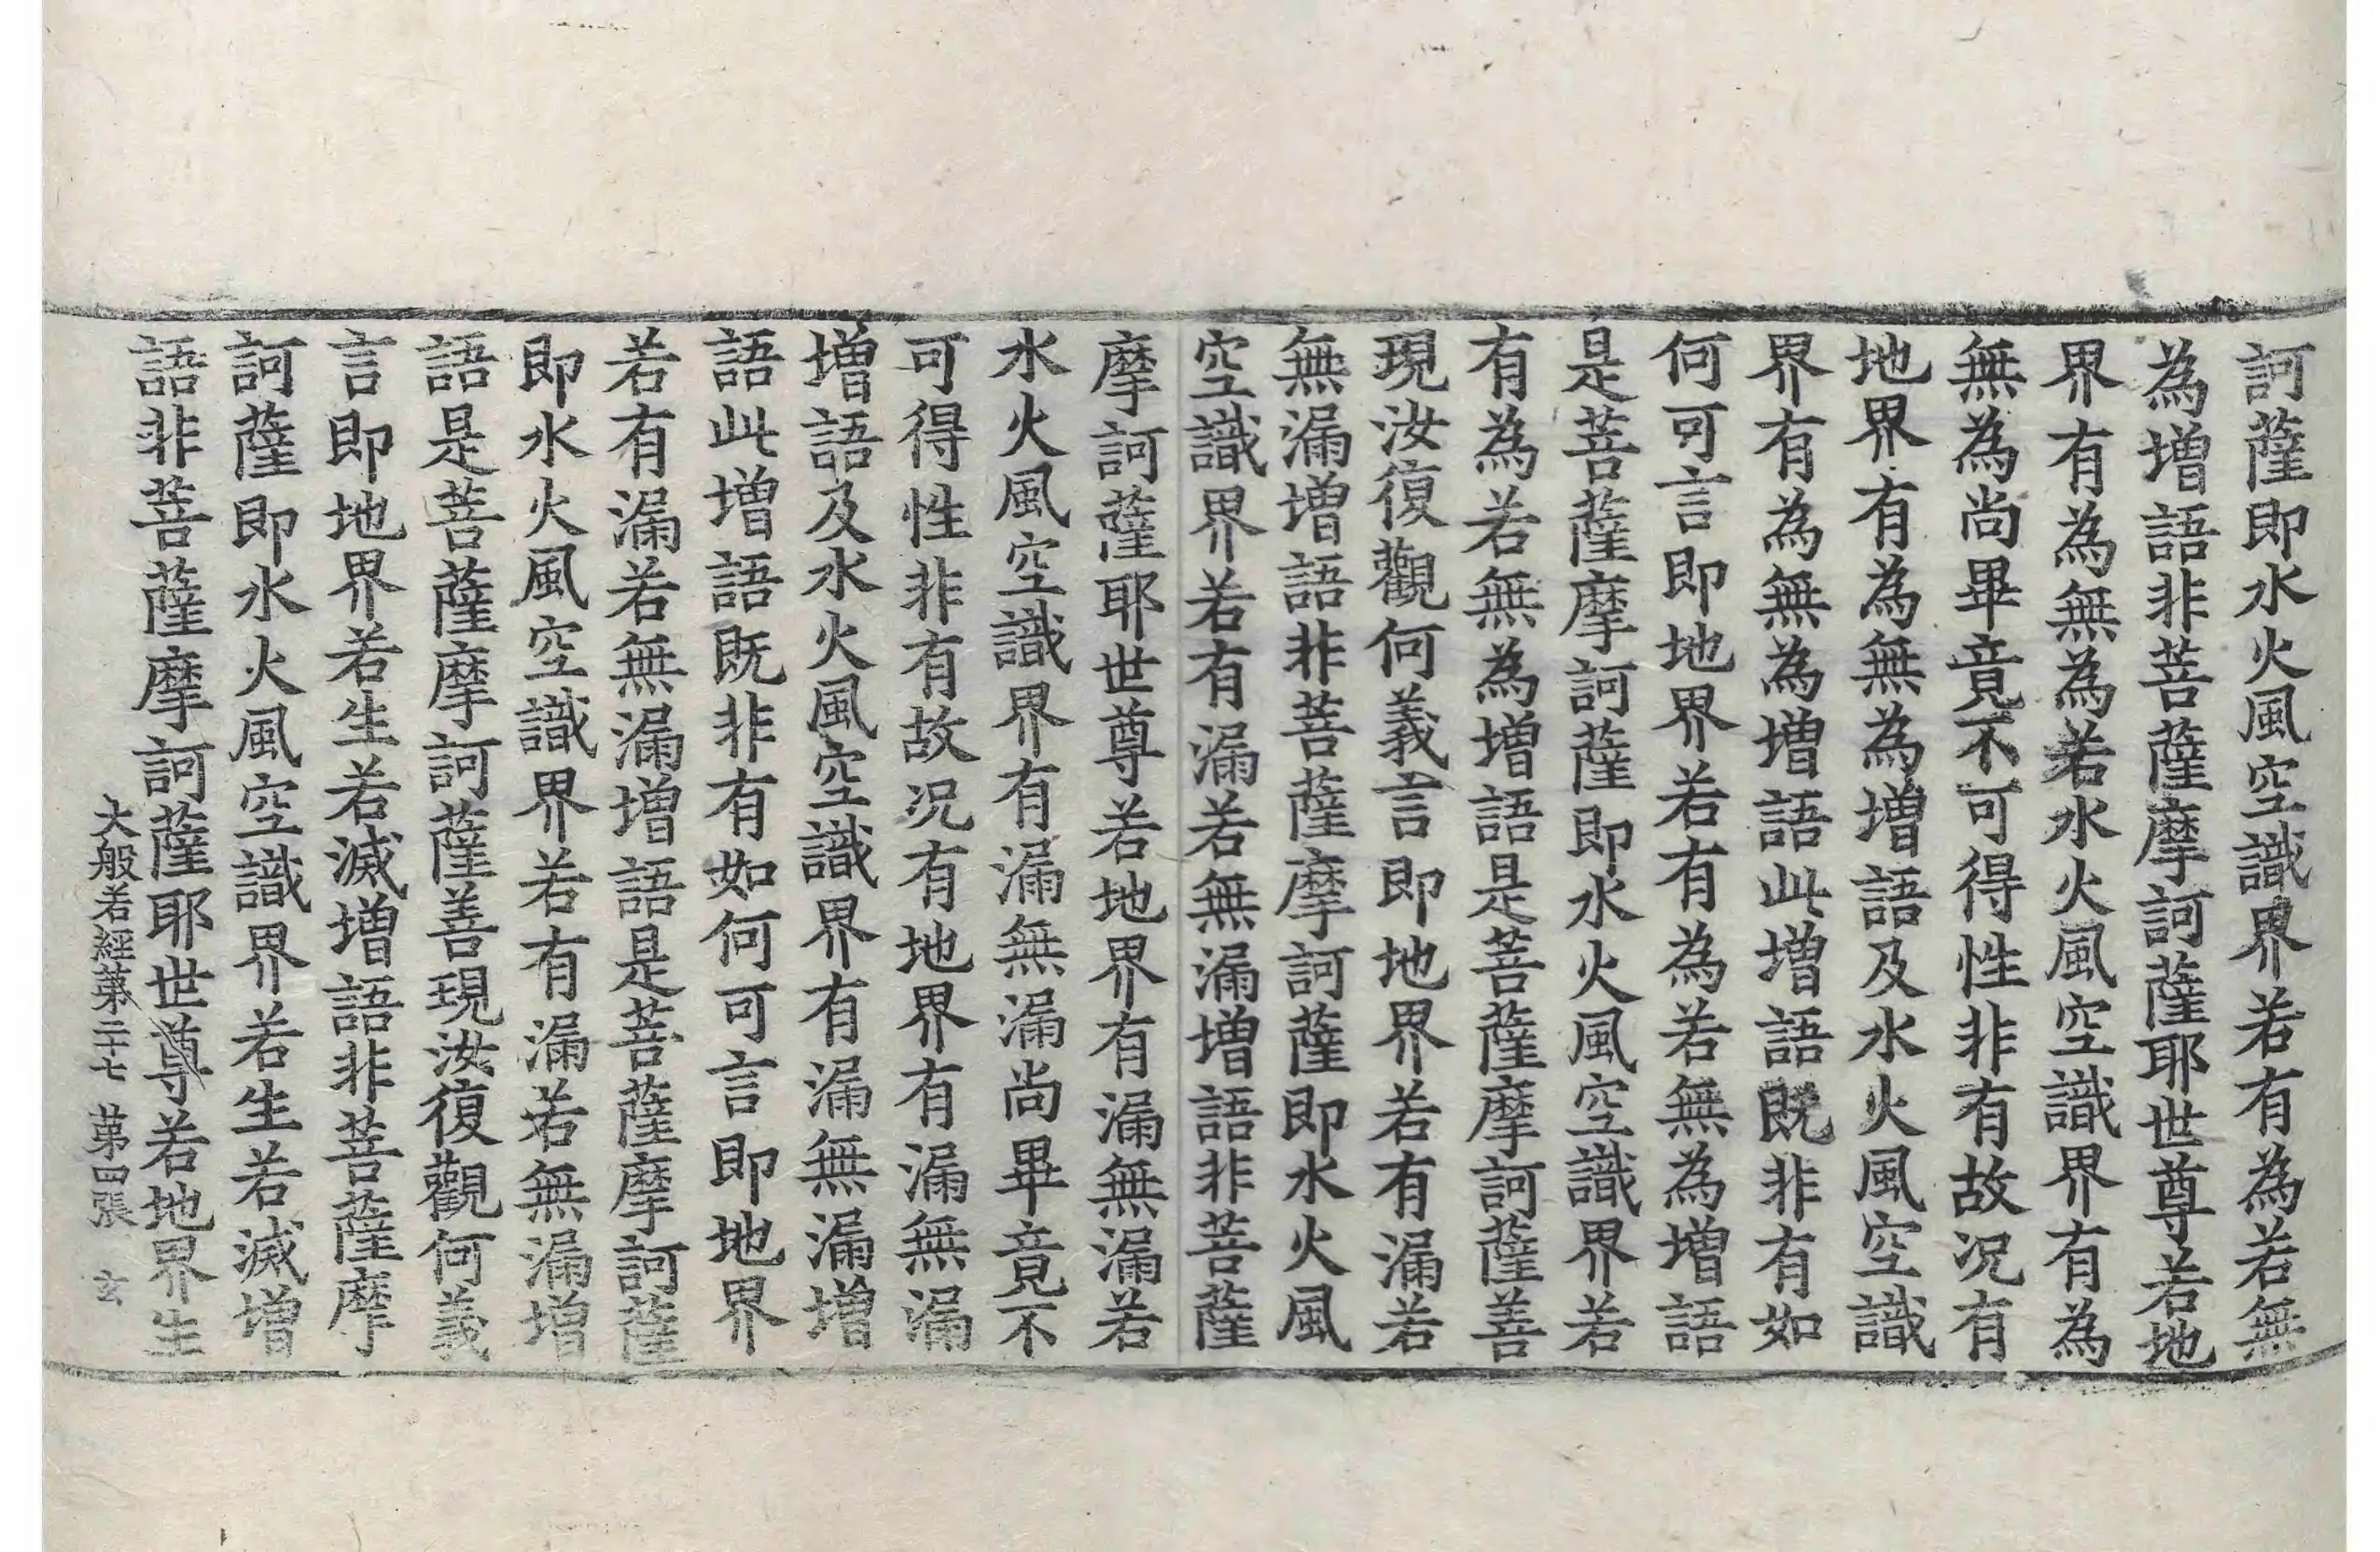 訶薩即水火風空識界若有為若無
為增語非菩薩摩訶薩耶世尊若地
界有為無為若水火風空識界有為
無為尚畢竟不可得性非有故况有
地界有為無為增語及水火風空識
界有為無為增語此增語既非有如
何可言即地界若有為若無為增語
是菩薩摩訶薩即水火風空識界若
有為若無為增語是菩薩摩訶薩善
現汝復觀何義言即地界若有漏若
無漏增語非菩薩摩訶薩即水火風
空識界若有漏若無漏增語非菩薩
摩訶薩耶世尊若地界有漏無漏若
水火風空識界有漏無漏尚畢竟不
可得性非有故况有地界有漏無漏
增語及水火風空識界有漏無漏增
語此增語既非有如何可言即地界
若有漏若無漏增語是菩薩摩訶薩
即水火風空識界若有漏若無漏增
語是菩薩摩訶薩善現汝復觀何義
言即地界若生若滅增語非菩薩摩
訶薩即水火風空識界若生若滅增
語非菩薩摩訶薩耶世尊若地界生
大般若經第二十七 第四張 玄